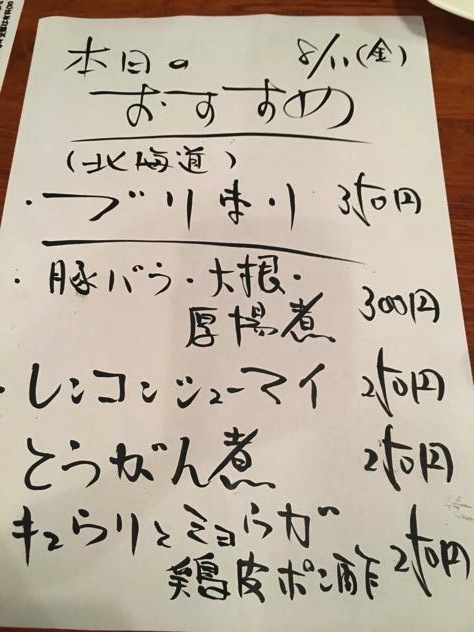 本日の 8/11(金)
おすすめ
(北海道)
・ブリ 350円
・豚バラ・大根・
厚揚煮 300円
・レンコンシューマイ 250円
とうがん煮 250円
キュウリとミョウガ
鶏皮ポン酢 250円